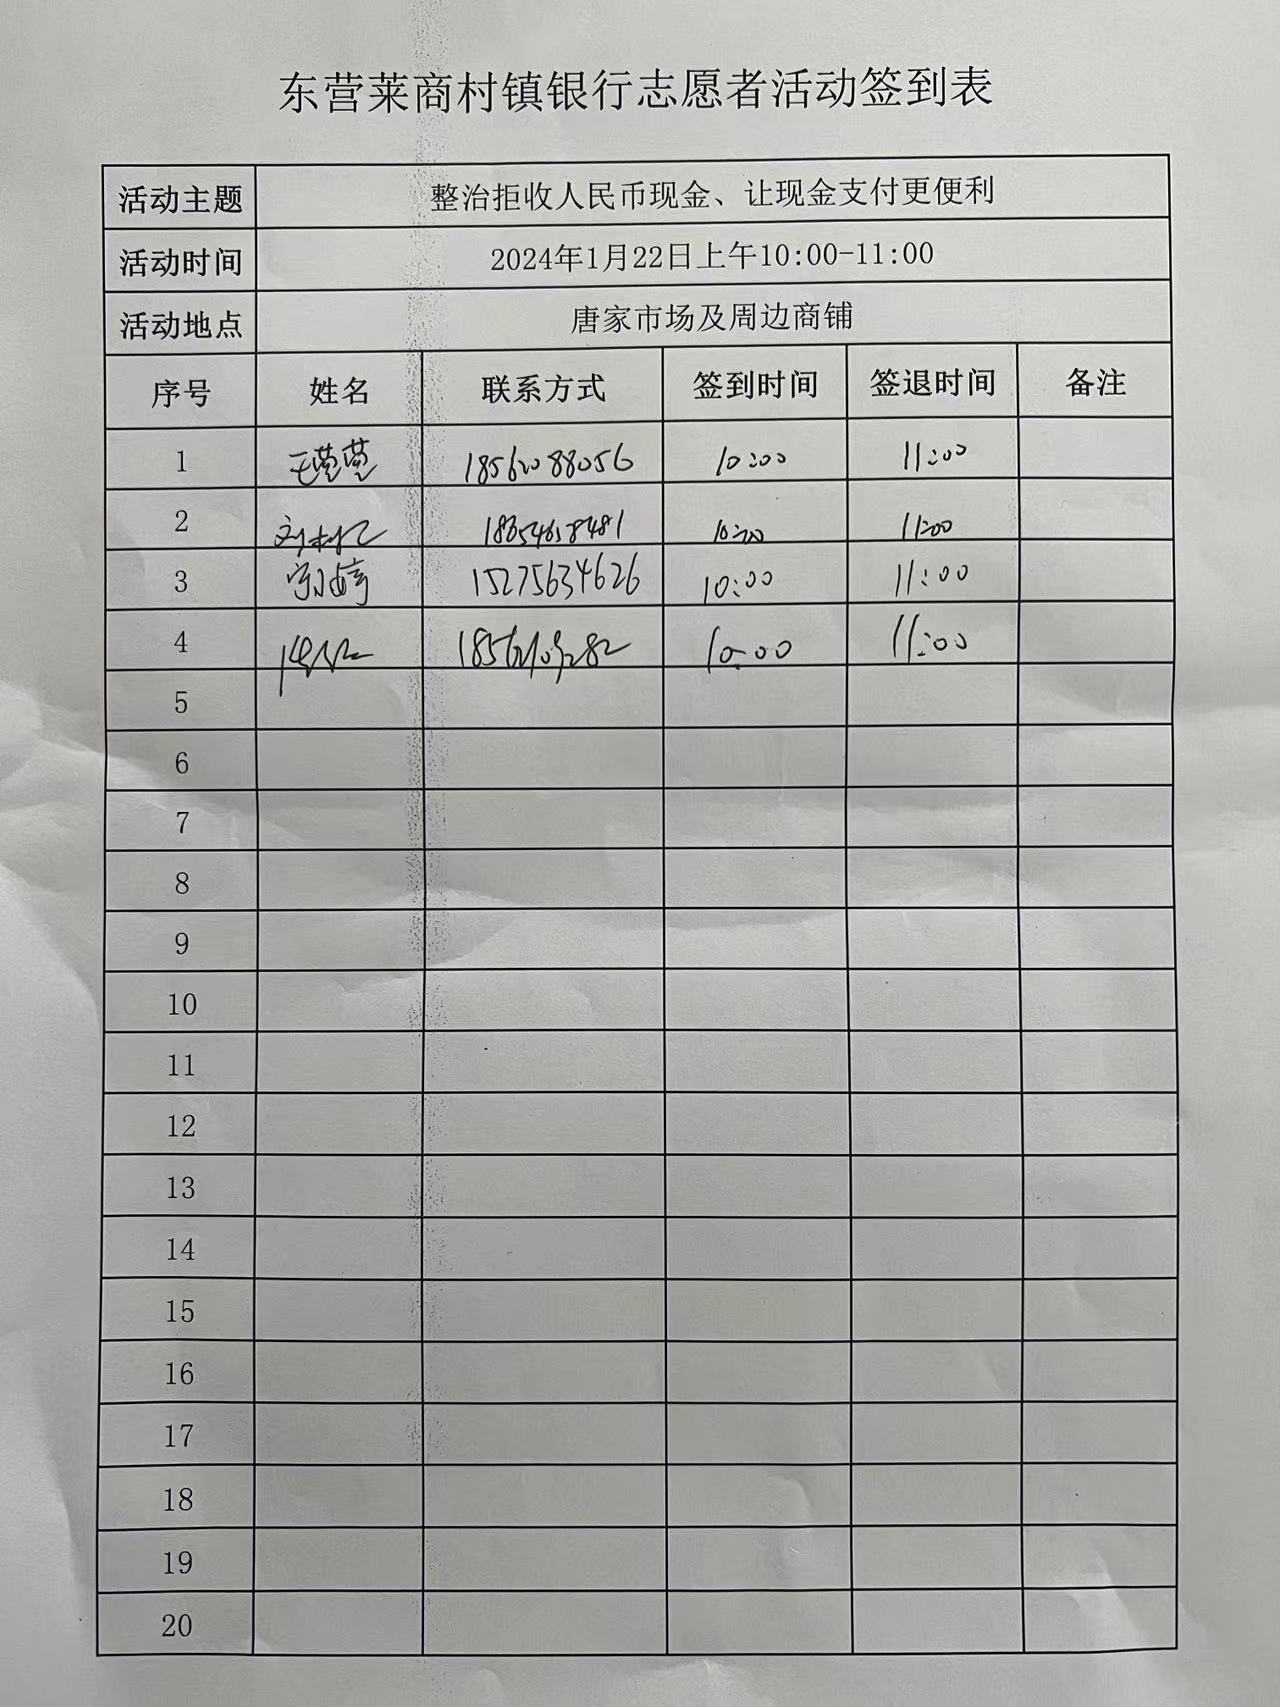 东营莱商村镇银行志愿者活动签到表
活动主题 整治拒收人民币现金、让现金支付更便利
活动时间 2024年1月22日上午10:00-11:00
活动地点 唐家市场及周边商铺
序号 姓名 联系方式 签到时间 签退时间 备注
1 王莹莹 18562088056 10:00 11:00
2 10:00 11:00
3 15275634626 10:00 11:00
4 10:00 11:00
5
6
7
8
9
10
11
12
13
14
15
16
17
18
19
20